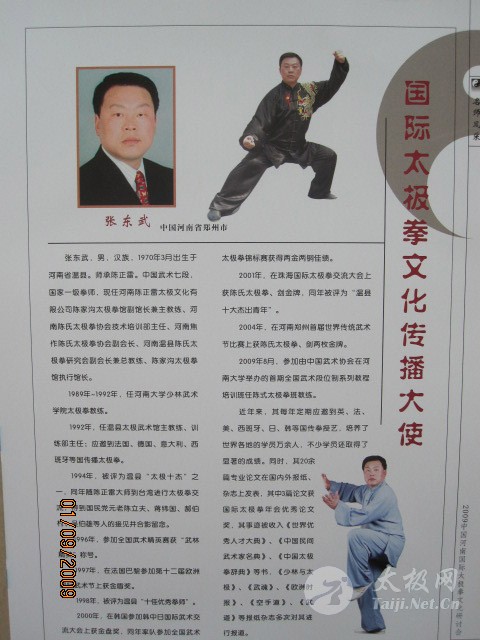 国际太极拳文化传播大使
张东武
中国河南省郑州市
张东武，男，汉族，1970年3月出生于
河南省温县。师承陈正雷。中国武术七段，
国家一级拳师，现任河南陈正雷太极文化有
限公司陈家沟太极拳馆副馆长兼主教练、河
南陈氏太极拳协会技术培训部主任、河南焦
作陈氏太极拳协会副会长、河南温县陈氏太
极拳研究会副会长兼总教练、陈家沟太极拳
馆执行馆长。
1989年-1992年，任河南大学少林武术
学院太极拳教练。
1992年，任温县太极武术馆主教练、训
练部主任；应邀到法国、德国、意大利、西
班牙等国传播太极拳。
1994年，被评为温县“太极十杰”之
一，同年随陈正雷大师到台湾进行太极拳交
到国民党元老陈立夫、蒋纬国、郝伯
雄等人的接见并合影留念。
996年，参加全国武术精英赛获“武林
称号。
997年，在法国巴黎参加第十二届欧洲
武术节上获金奖。
1998年，被评为温县“十佳优秀拳师”。
2000年，在韩国参加韩中日国际武术交
流大会上获金盘奖，同年率队参加全国武术
太极拳锦标赛获得两金两铜佳绩。
2001年，在珠海国际太极拳交流大会上
获陈氏太极拳、剑金牌，同年被评为“温县
十大杰出青年”。
2004年，在河南郑州首届世界传统武术
节比赛上获陈氏太极拳、剑两枚金牌。
2009年8月，参加由中国武术协会在河
南大学举办的首期全国武术段位制系列教程
培训班任陈式太极拳班教练。
近年来，其每年定期应邀到英、法、
美、西班牙、日、韩等国传拳授艺，培养了
世界各地的学员万余人，不少学员还取得了
显著的成绩。同时，其20余
篇专业论文在国内外报纸、
杂志上发表，其中3篇论文获
国际太极拳年会优秀论文
奖，其事迹被收入《世界优
秀人才大典》、《中国民间
武术家名典》、《中国太极
拳辞典》等书，《少林与太
极》、《武魂》、《欧洲时
报》、《空手道》、《武
道》等报纸杂志多次对其进
行报道。
01/09/2009
太极网
Taiji.Net.Cn